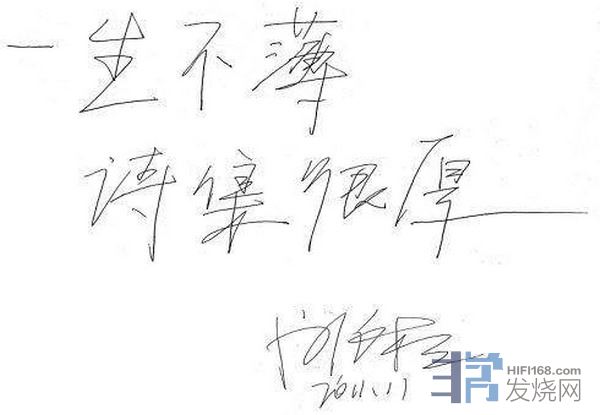 一生不薄
诗集很厚
2011.11
HIFI168.com
发烧网